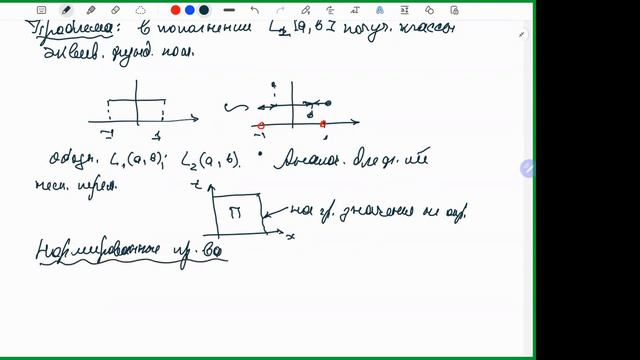 Проблема: в пополнении L₁[a,b] получ. классы
эквив. фунд. посл.
-1 1
-1 1
Обозн. L₁(a,b); L₂(a,b). • Аналог. для
неск. перем.
t
П
на гр. значения не опр.
x
Нормированные пр-ва